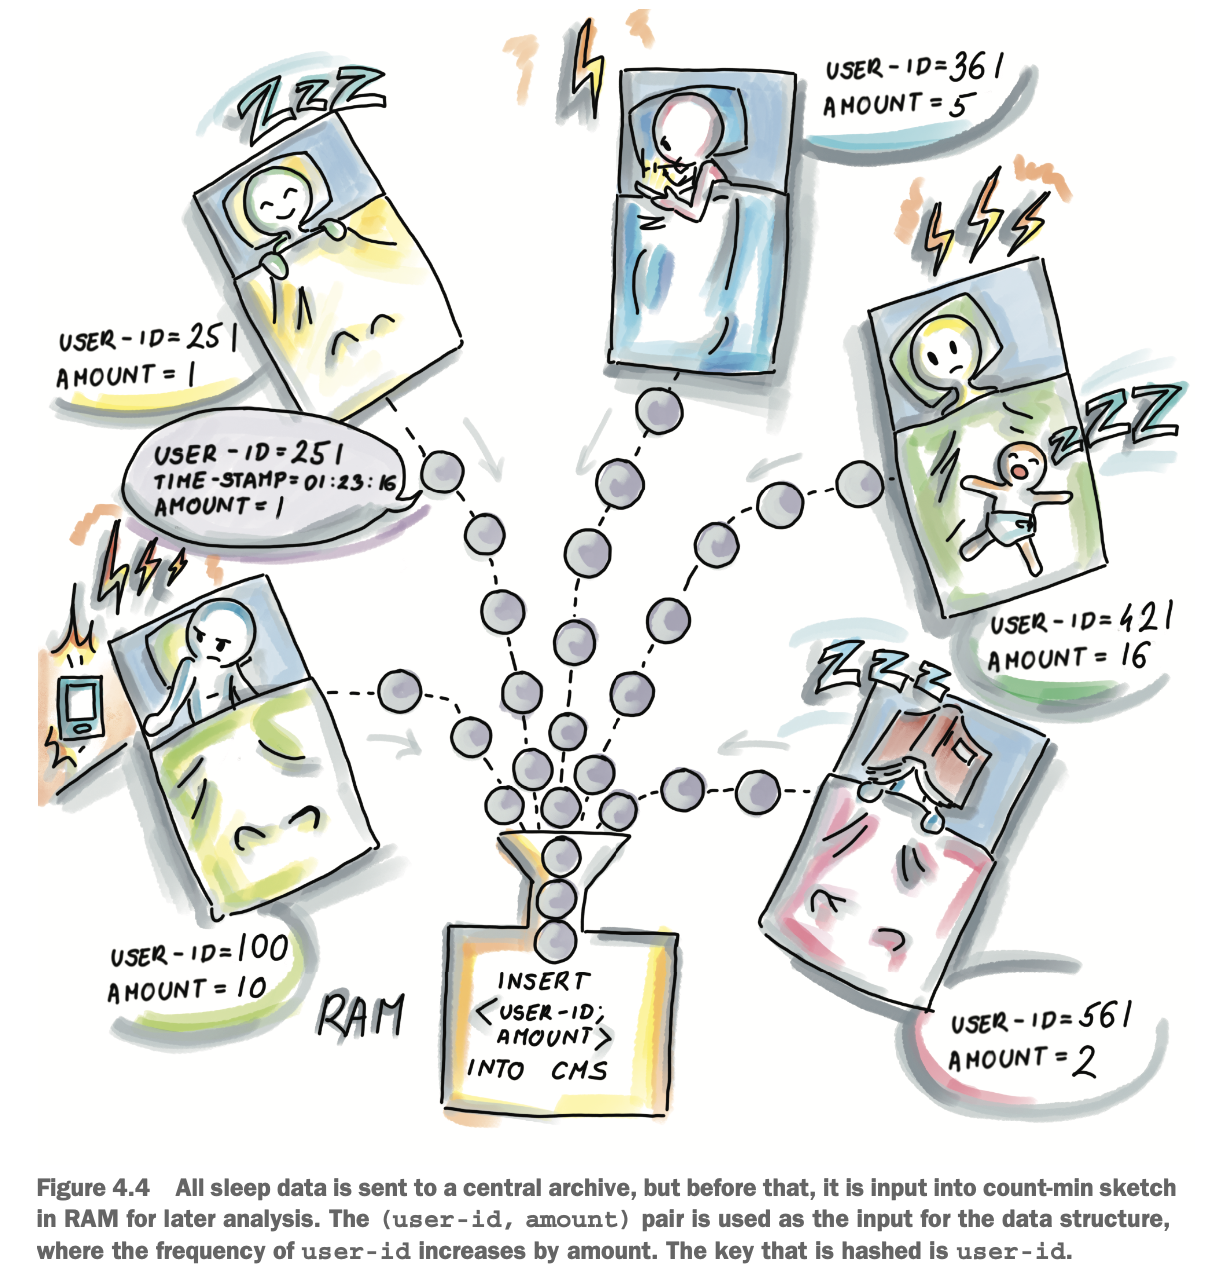 ZZZ
USER-ID=361
AMOUNT=5
USER-ID=251
AMOUNT=1
USER-ID=251
TIME-STAMP=01:23:16
AMOUNT=1
ZZZ
USER-ID=421
AMOUNT=16
ZZZ
USER-ID=100
AMOUNT=10
RAM
INSERT
<USER-ID;
AMOUNT>
INTO CMS
USER-ID=561
AMOUNT=2
Figure 4.4 All sleep data is sent to a central archive, but before that, it is input into count-min sketch
in RAM for later analysis. The (user-id, amount) pair is used as the input for the data structure,
where the frequency of user-id increases by amount. The key that is hashed is user-id.